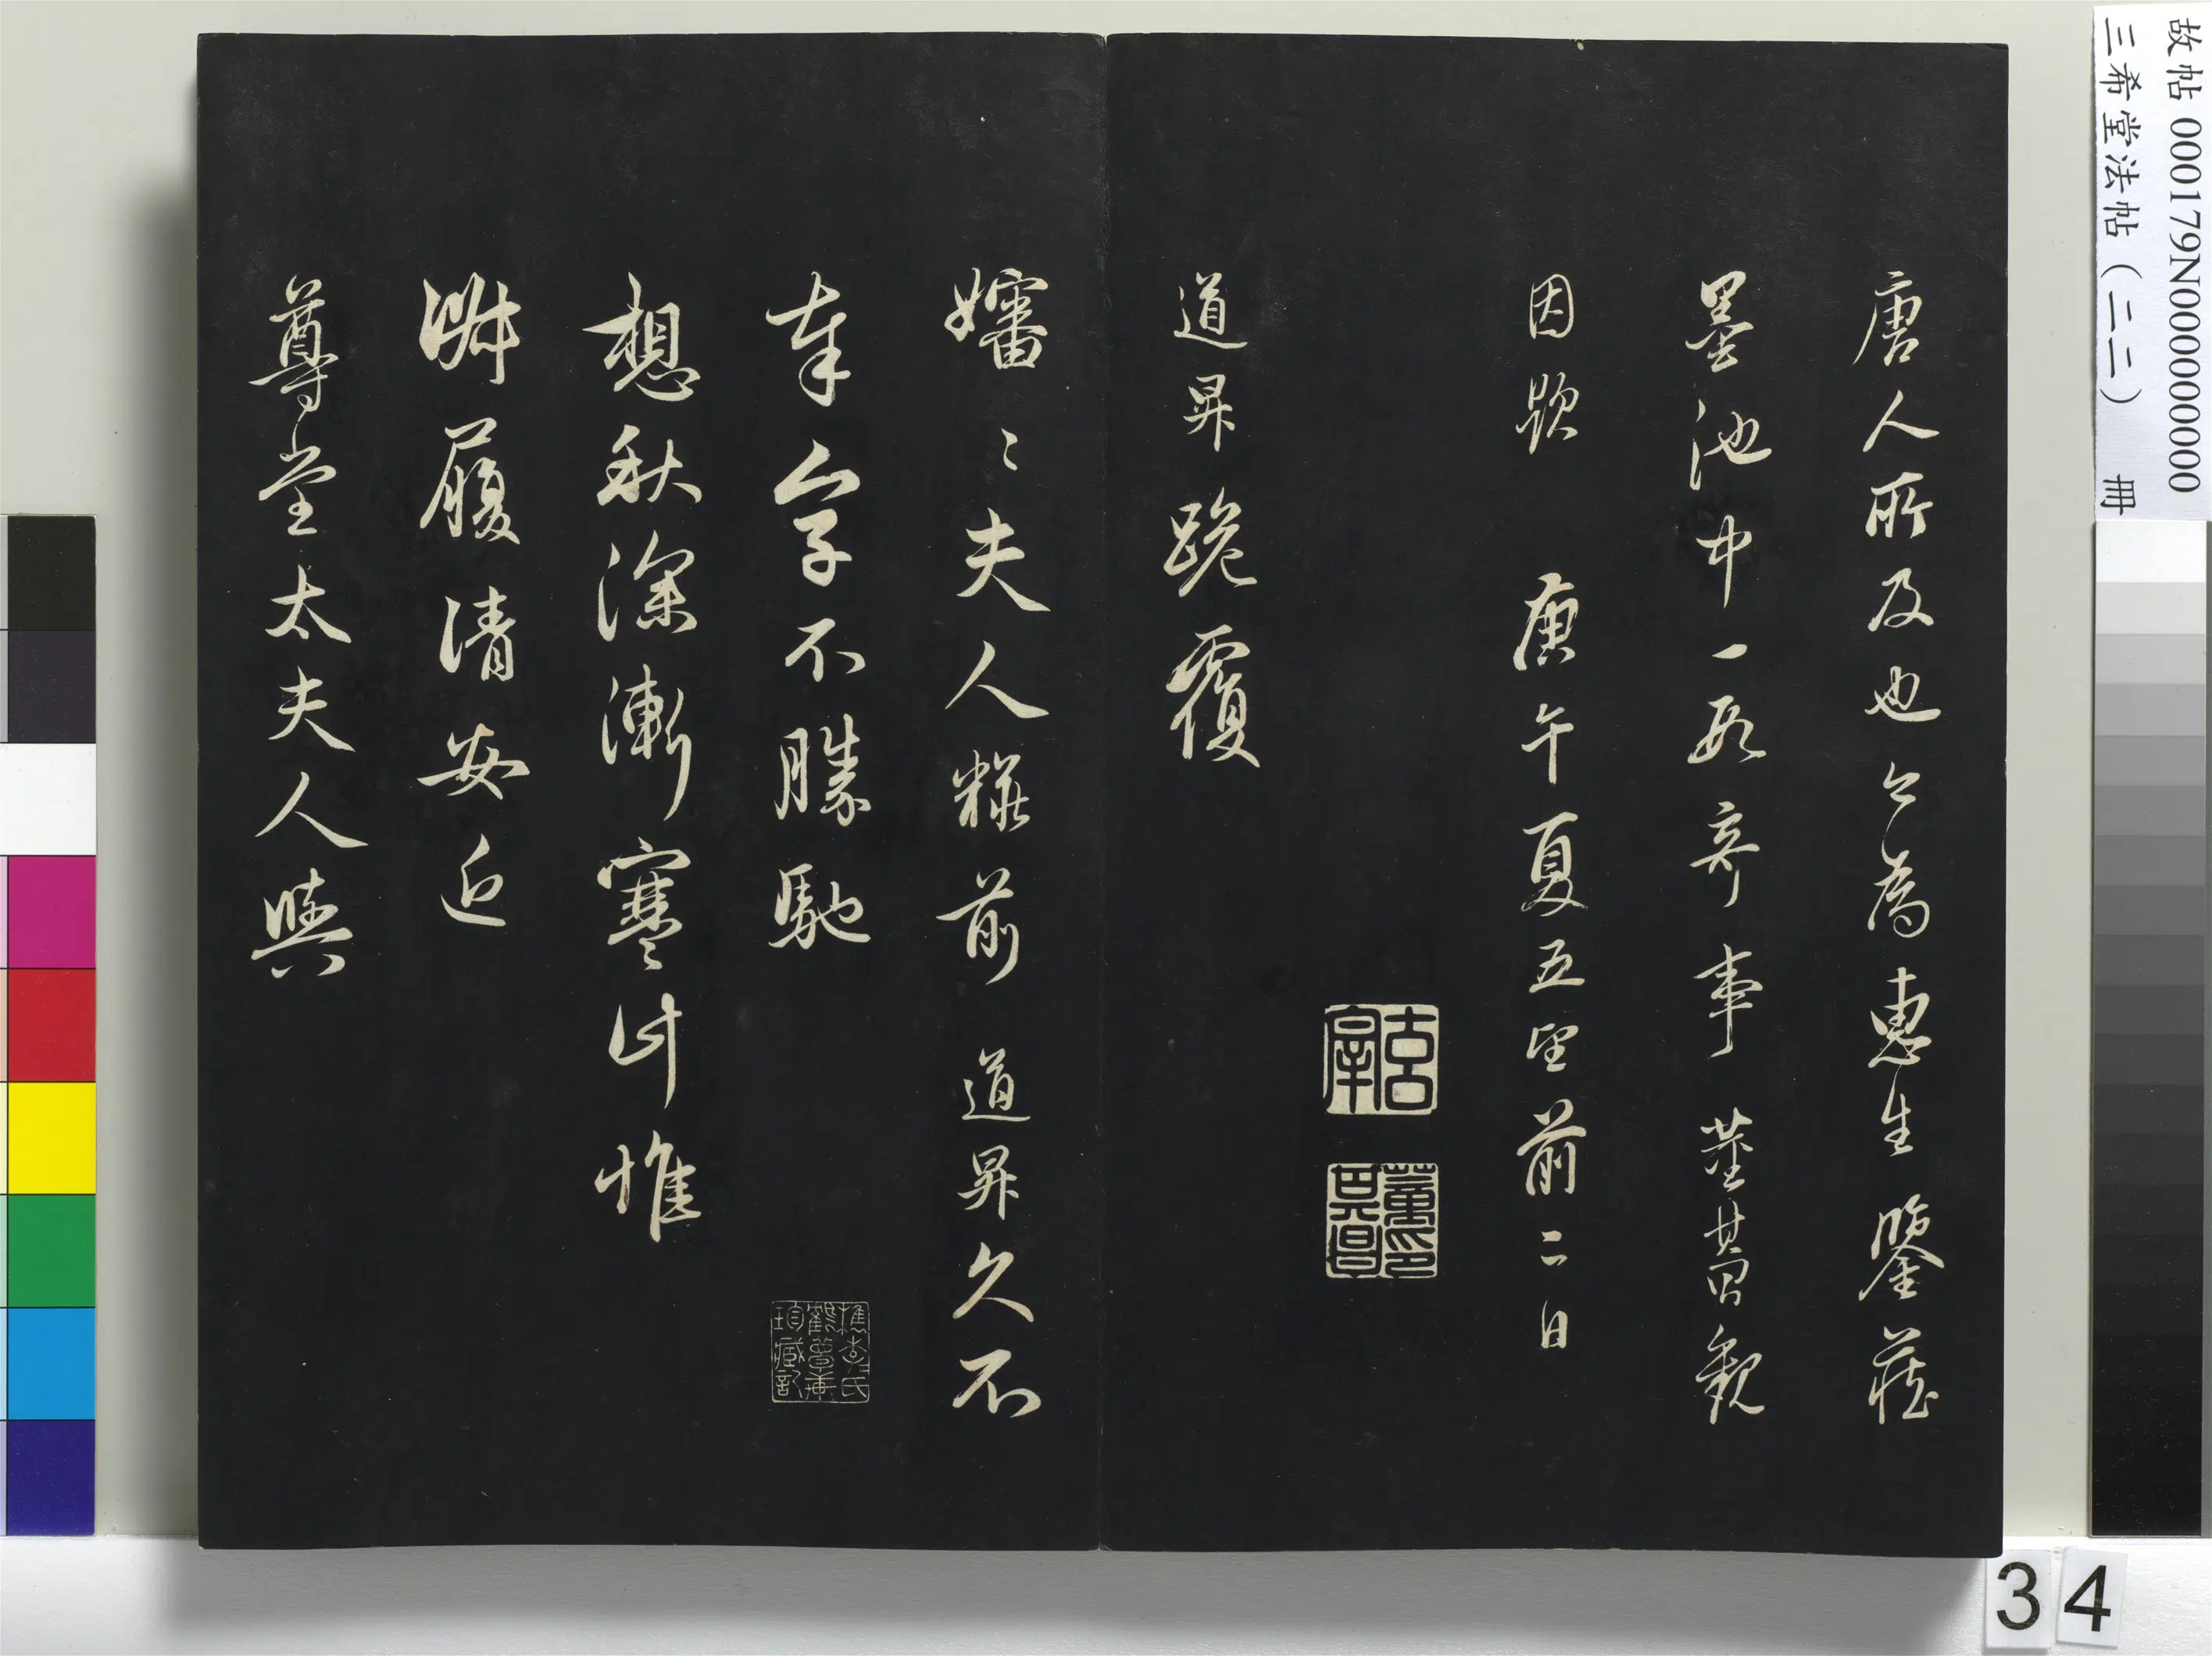 故帖 000179N000000000
三希堂法帖（二二） 冊
唐人所及也今為惠生鑒藏
墨池中一段奇事 董其昌觀
因題 庚午夏五望前二日
董其昌印
道昇跪覆
嬸〻夫人糚前 道昇久不
奉字不勝馳
想秋深漸寒計惟
淑履清安近
尊堂太夫人與
檇李項氏
34